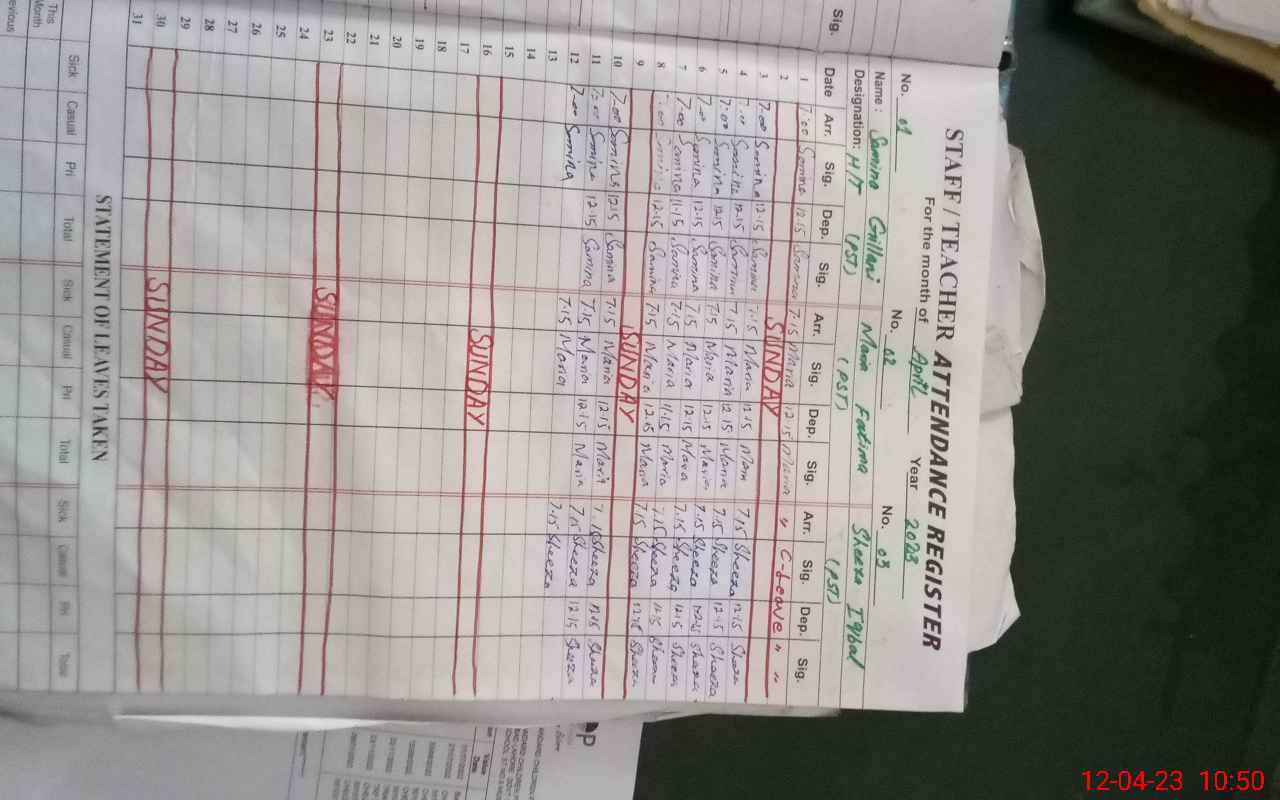 STAFF / TEACHER ATTENDANCE REGISTER
For the month of April Year 2023
No. 01 No. 02 No. 03
Name: Samina Gillani Maria Fatima Sheeza Iqbal
Designation: H/T (PST) (PST) (PST)
Sig. Date Arr. Sig. Dep. Sig. Arr. Sig. Dep. Sig. Arr. Sig. Dep. Sig.
1 7:00 Samina 12.15 Samina 7.15 Maria 12.15 Maria " C-Leave " "
2 SUNDAY
3 7:00 Samina 12.15 Samina 7.15 Maria 12.15 Maria 7.15 Sheeza 12.15 Sheeza
4 7:00 Samina 12.15 Samina 7.15 Maria 12.15 Maria 7.15 Sheeza 12.15 Sheeza
5 7:00 Samina 12.15 Samina 7.15 Maria 12.15 Maria 7.15 Sheeza 12.15 Sheeza
6 7:00 Samina 12.15 Samina 7.15 Maria 12.15 Maria 7.15 Sheeza 12.15 Sheeza
7 7:00 Samina 11.15 Samina 7.15 Maria 11.15 Maria 7.15 Sheeza 11.15 Sheeza
8 7:00 Samina 12.15 Samina 7.15 Maria 12.15 Maria 7.15 Sheeza 12.15 Sheeza
9 SUNDAY
10 7:00 Samina 12.15 Samina 7.15 Maria 12.15 Maria 7.15 Sheeza 12.15 Sheeza
11 7:00 Samina 12.15 Samina 7.15 Maria 12.15 Maria 7.15 Sheeza 12.15 Sheeza
12 7:00 Samina 7.15 Maria 7.15 Sheeza
13
14
15
16 SUNDAY
17
18
19
20
21
22
23 SUNDAY
24
25
26
27
28
29
30 SUNDAY
31
STATEMENT OF LEAVES TAKEN
Sick Casual Pri Total Sick Casual Pri Total Sick Casual Pri Total
This Month
Previous
12-04-23 10:50